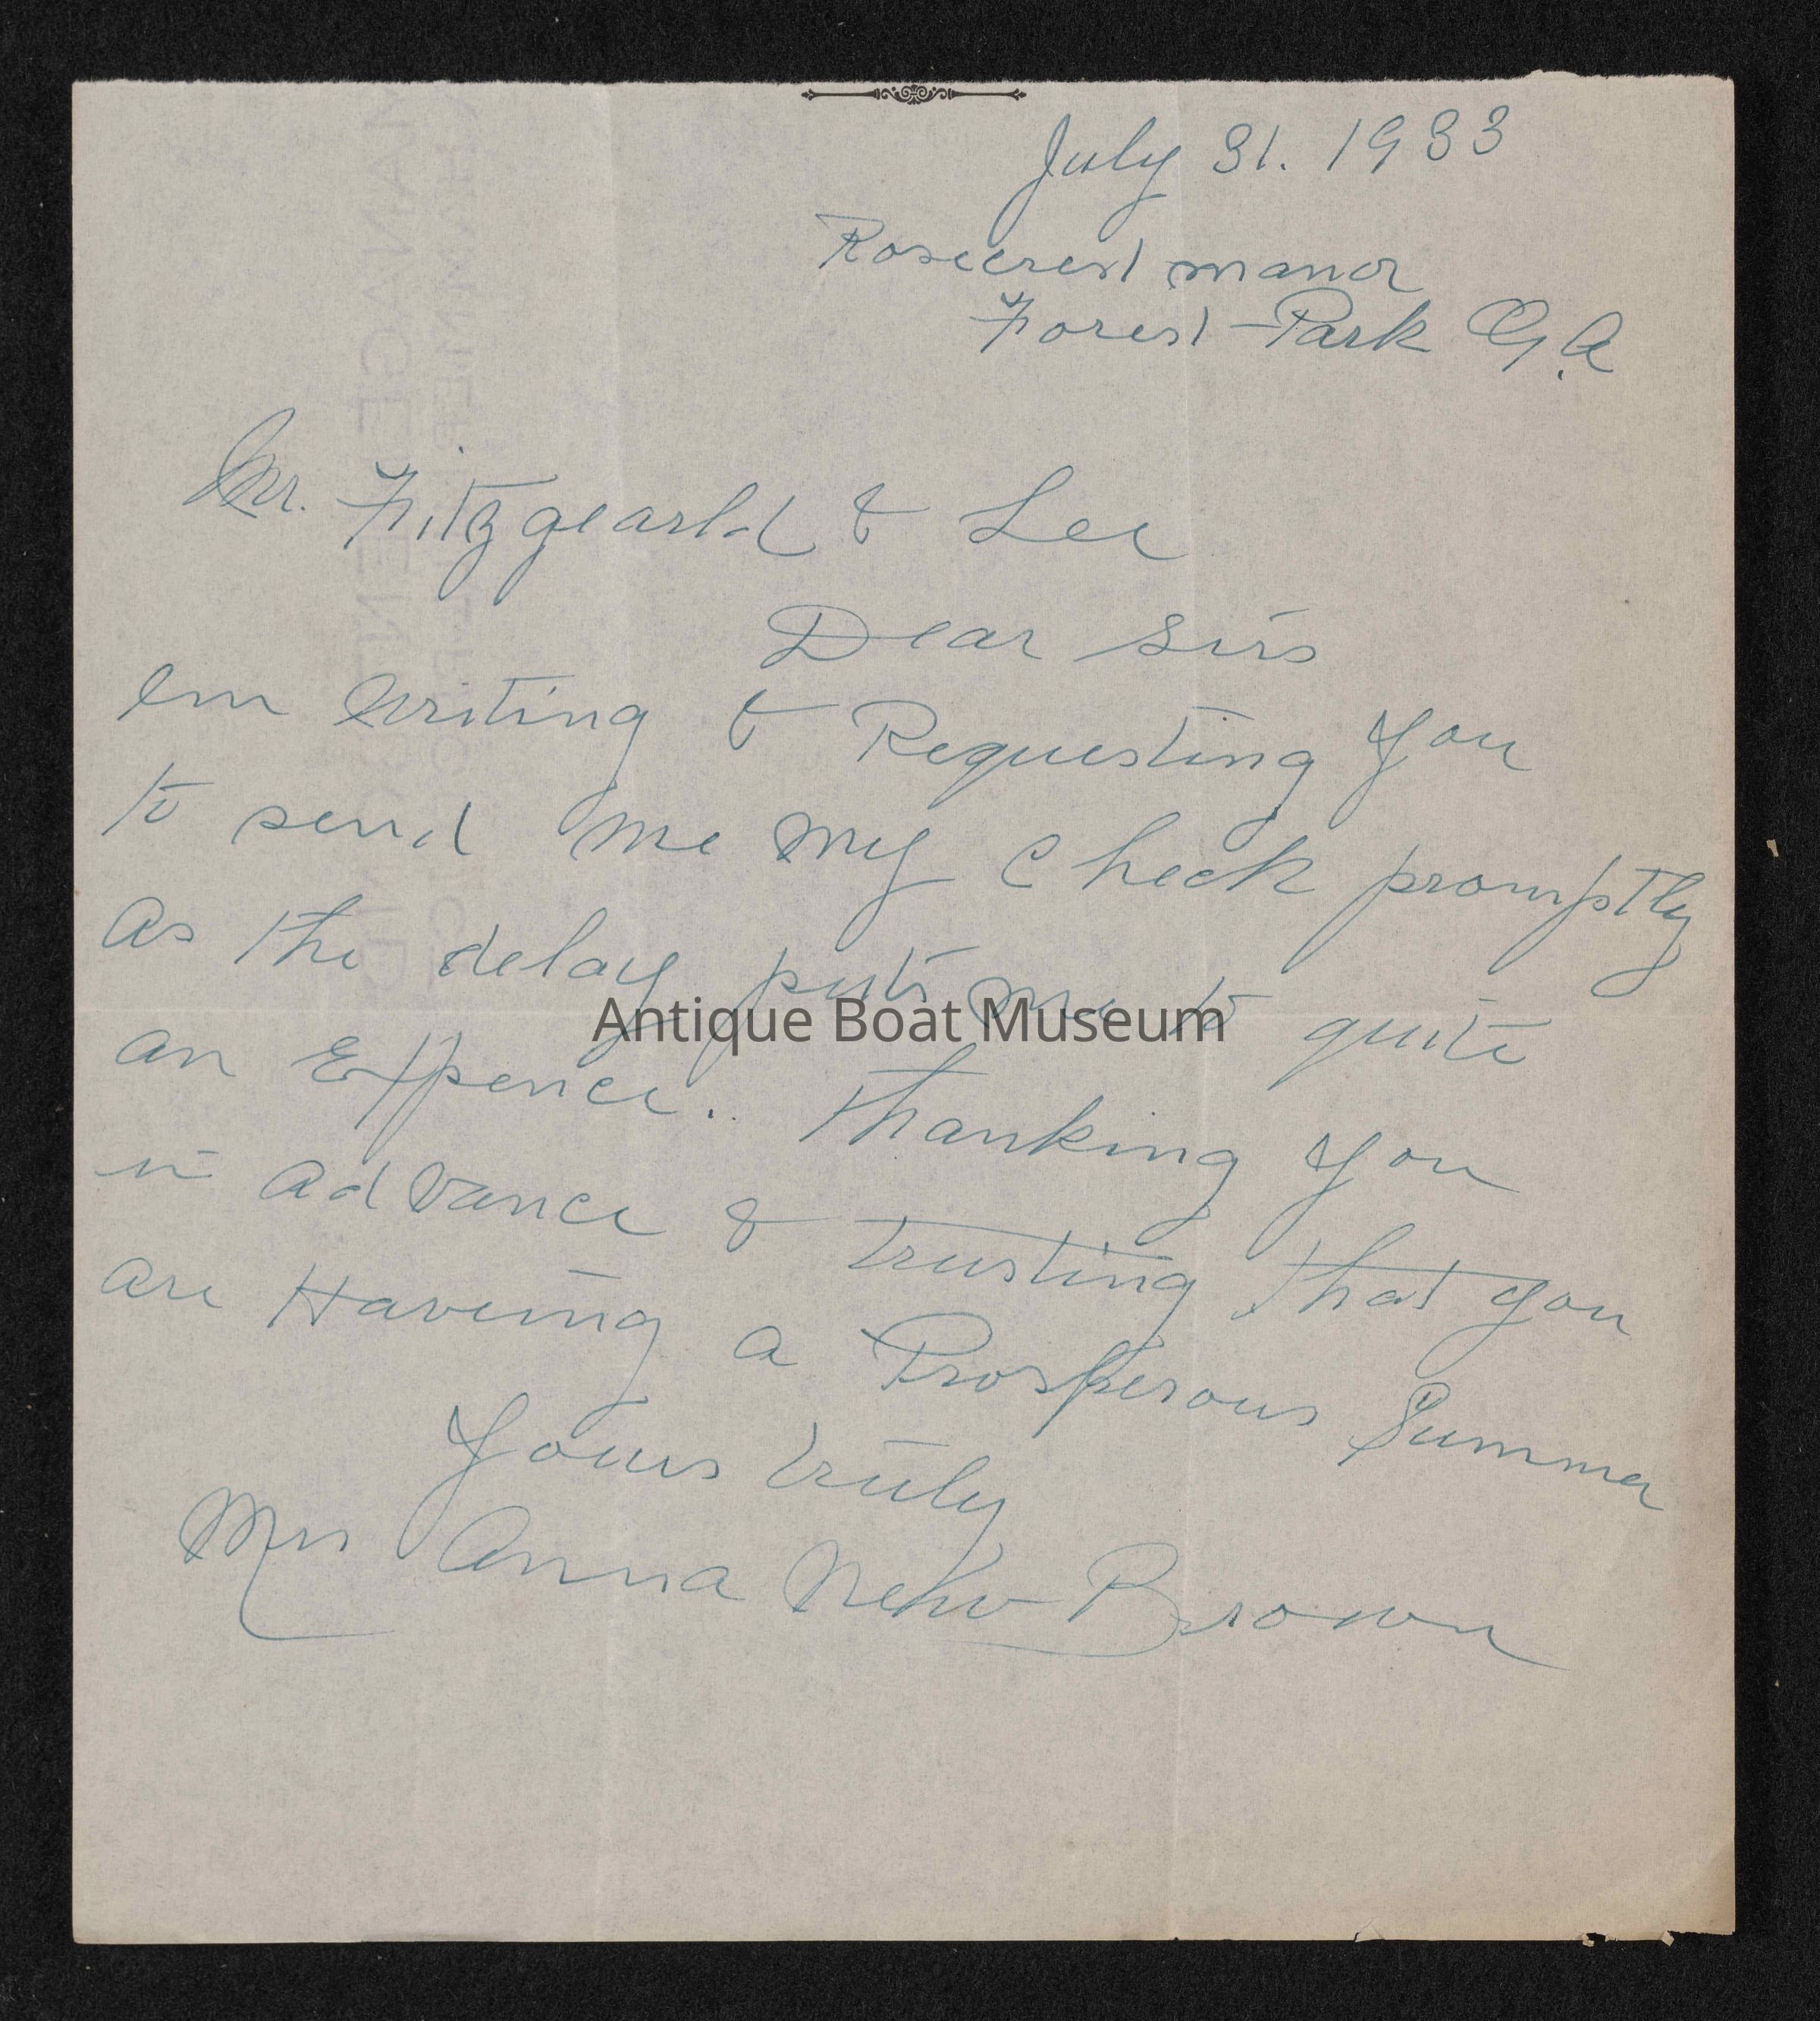 July 31. 1933
Rosecrest manor
Forest-Park Ga
Mr. Fitzgearld & Lee
Dear Sirs
Im Writing & Requesting you
to send me my Check promptly
as the delay puts me to quite
Antique Boat Museum
an Expence. Thanking you
in advance & trusting that you
are Haveing a Prosperous Summer
Yours truly
Mrs Anna New Brown